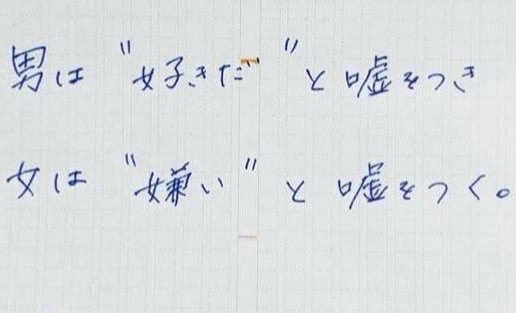 男は"好きだ"と嘘をつき
女は"嫌い"と嘘をつく。